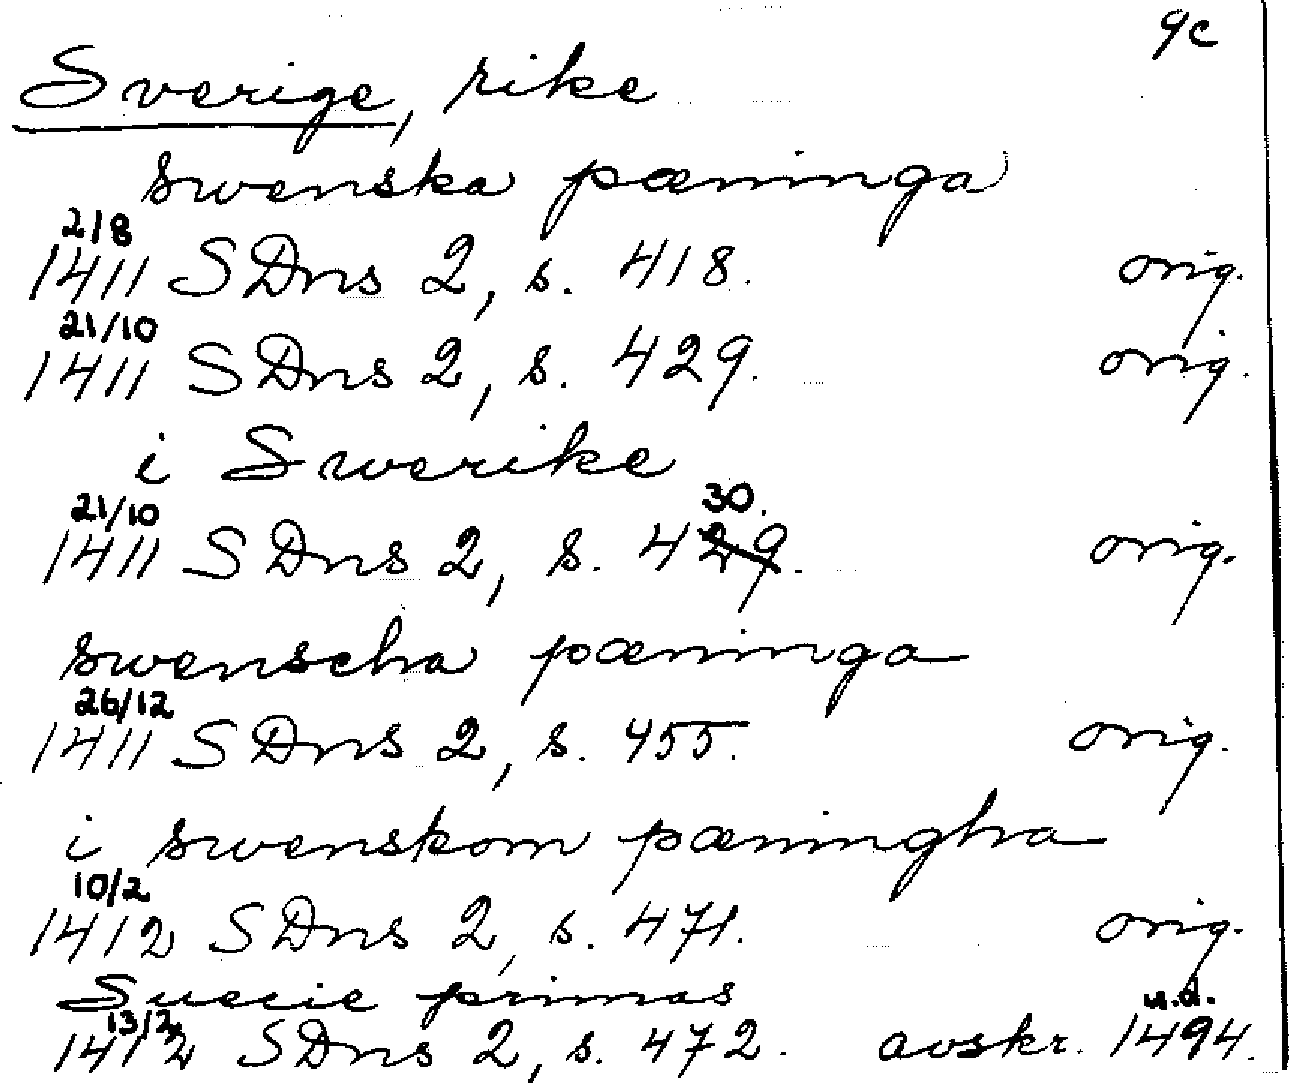 9c
Sverige, rike
swenska pæninga
2/8
1411 SDns 2, s. 418. orig.
21/10
1411 SDns 2, s. 429. orig.
i Swerike
21/10 30.
1411 SDns 2, s. 429. orig.
swenscha pæninga
26/12
1411 SDns 2, s. 455. orig.
i swenskom pæningha
10/2
1412 SDns 2, s. 471. orig.
Suecie primas
13/2 u.d.
1412 SDns 2, s. 472. avskr. 1494.